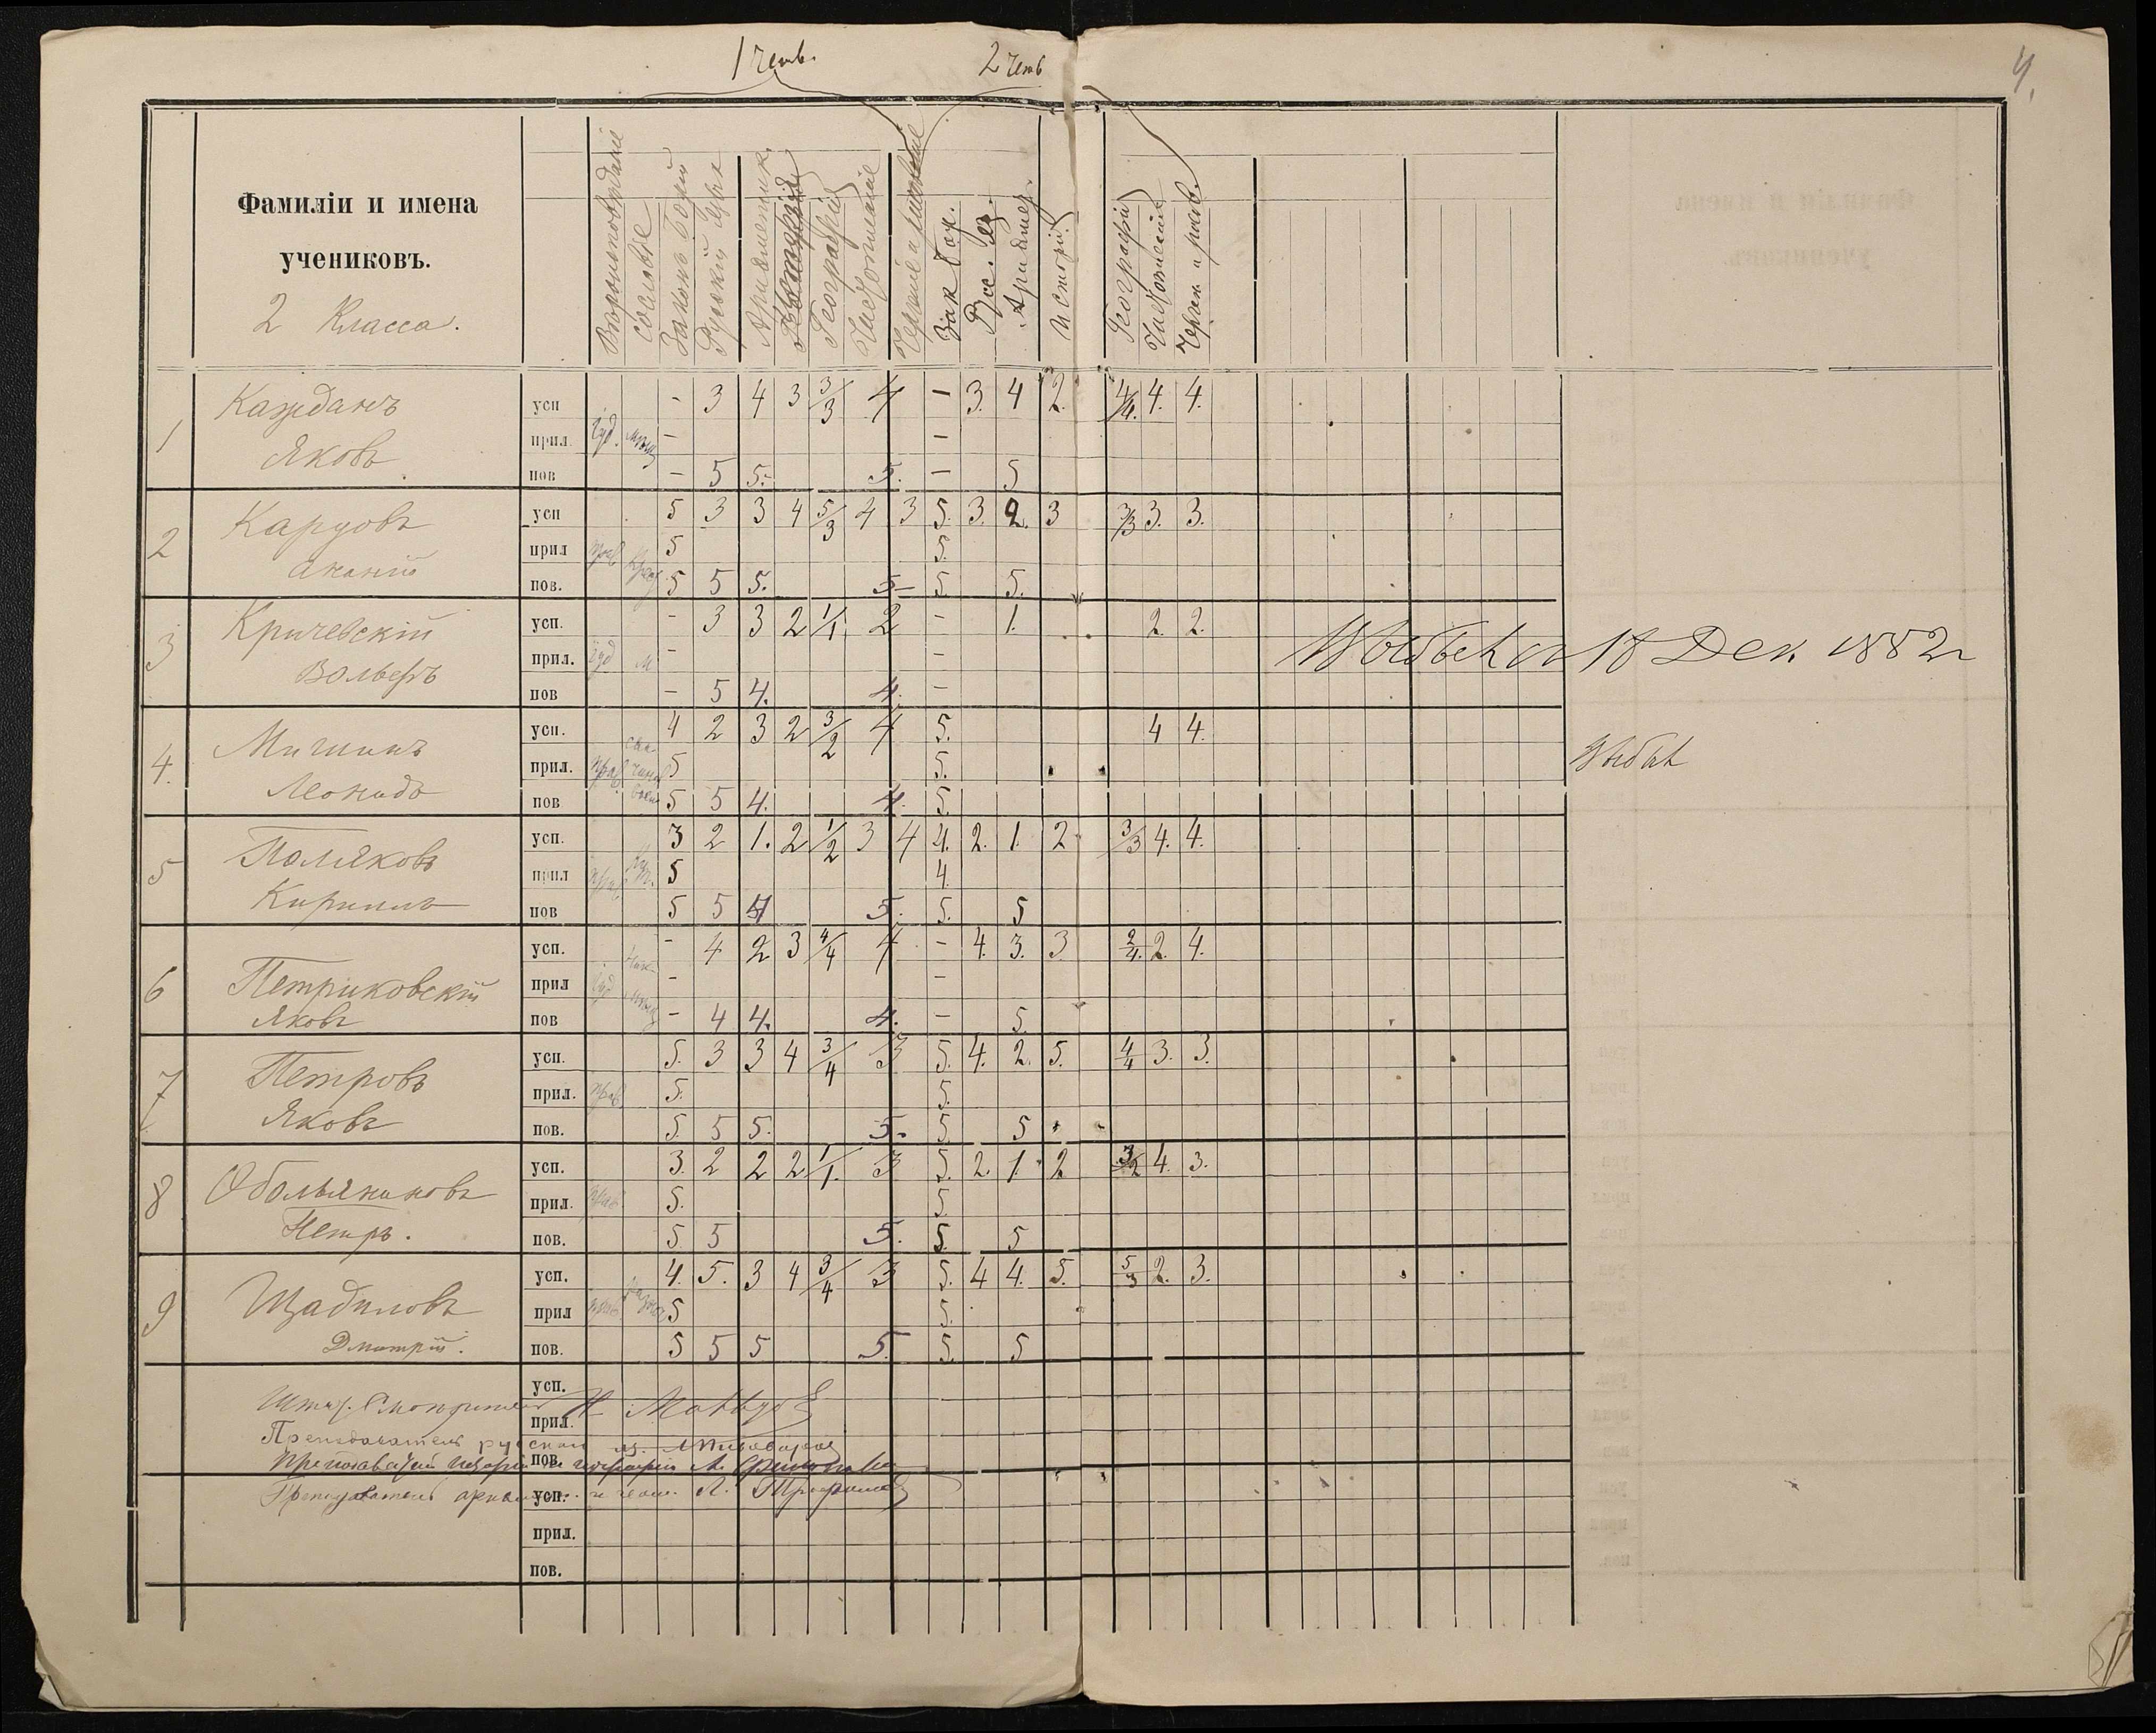 1 четв. 2 четв
4.
Фамиліи и имена
учениковъ.
2 Класса.
Вѣроисповѣданіе
сословіе
Законъ Божій
Русскій языкъ
Ариѳметик.
Исторія
Географія
Чистописаніе
Черченіе и рисованіе
Зак. Бож.
Рус. яз.
Ариѳмет.
Исторія
Географія
Чистописаніе
Черчен. и рисов.
1 Каждакъ усп - 3 4 3 3/3 4 - 3. 4 2. 4/4. 4. 4.
Яковъ прил. іуд. мѣщ - -
пов - 5 5. 5. - 5
2 Карповъ усп 5 3 3 4 5/3 4 3 5. 3. 2. 3 3/3 3. 3.
прил прав 5 5.
пов. 5 5 5. 5 5 5.
3 Кричевскій усп. - 3 3 2 1/1. 2 - 1. 2. 2.
Вольфъ прил. іуд м - -
пов - 5 4. 4. -
Выбылъ 18 Дек. 1882 г
4. Мишинъ усп. 4 2 3 2 3/2 4 5. 4 4.
Леонидъ прил. прав. 5 5.
пов 5 5 4. 4. 5.
Выбылъ
5 Поляковъ усп. 3 2 1. 2 1/2 3 4 4. 2. 1. 2 3/3 4. 4.
Кирилъ прил прав. 5 4.
пов 5 5 4 5. 5. 5
6 Петриковскій усп. - 4 2 3 4/4 4 - 4. 3. 3 2/4. 2. 4.
Яковъ прил іуд - -
пов - 4 4. 4. - 5.
7 Петровъ усп. 5. 3 3 4 3/4 3 5. 4. 2. 5. 4/4 3. 3.
Яковъ прил. прав. 5. 5.
пов. 5. 5 5. 5. 5. 5
8 Обольяниновъ усп. 3. 2 2 2 1/1. 3 5. 2. 1. 2 3/2 4. 3.
Петръ. прил. прав. 5. 5.
пов. 5 5 5. 5. 5
9 Щадиловъ усп. 4. 5. 3 4 3/4 3 5. 4 4. 5. 5/3 2. 3.
Дмитрій. прил прав. 5 5.
пов. 5 5 5 5. 5. 5
усп.
Штат. Смотритель
прил.
Преподаватель русскаго яз.
пов.
Преподаватель исторіи и географіи
Преподаватель
усп.
прил.
пов.